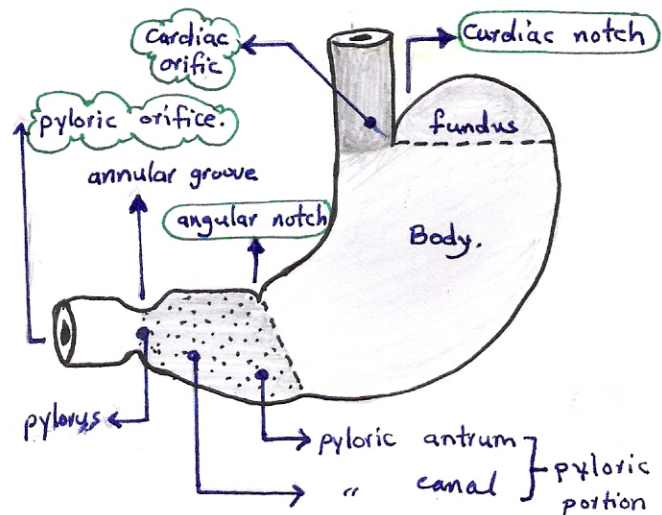 Cardiac
orific
Curdiac notch
pyloric orifice.
fundus
annular groove
angular notch
Body.
pylorus
pyloric antrum
〃 canal
pyloric
portion